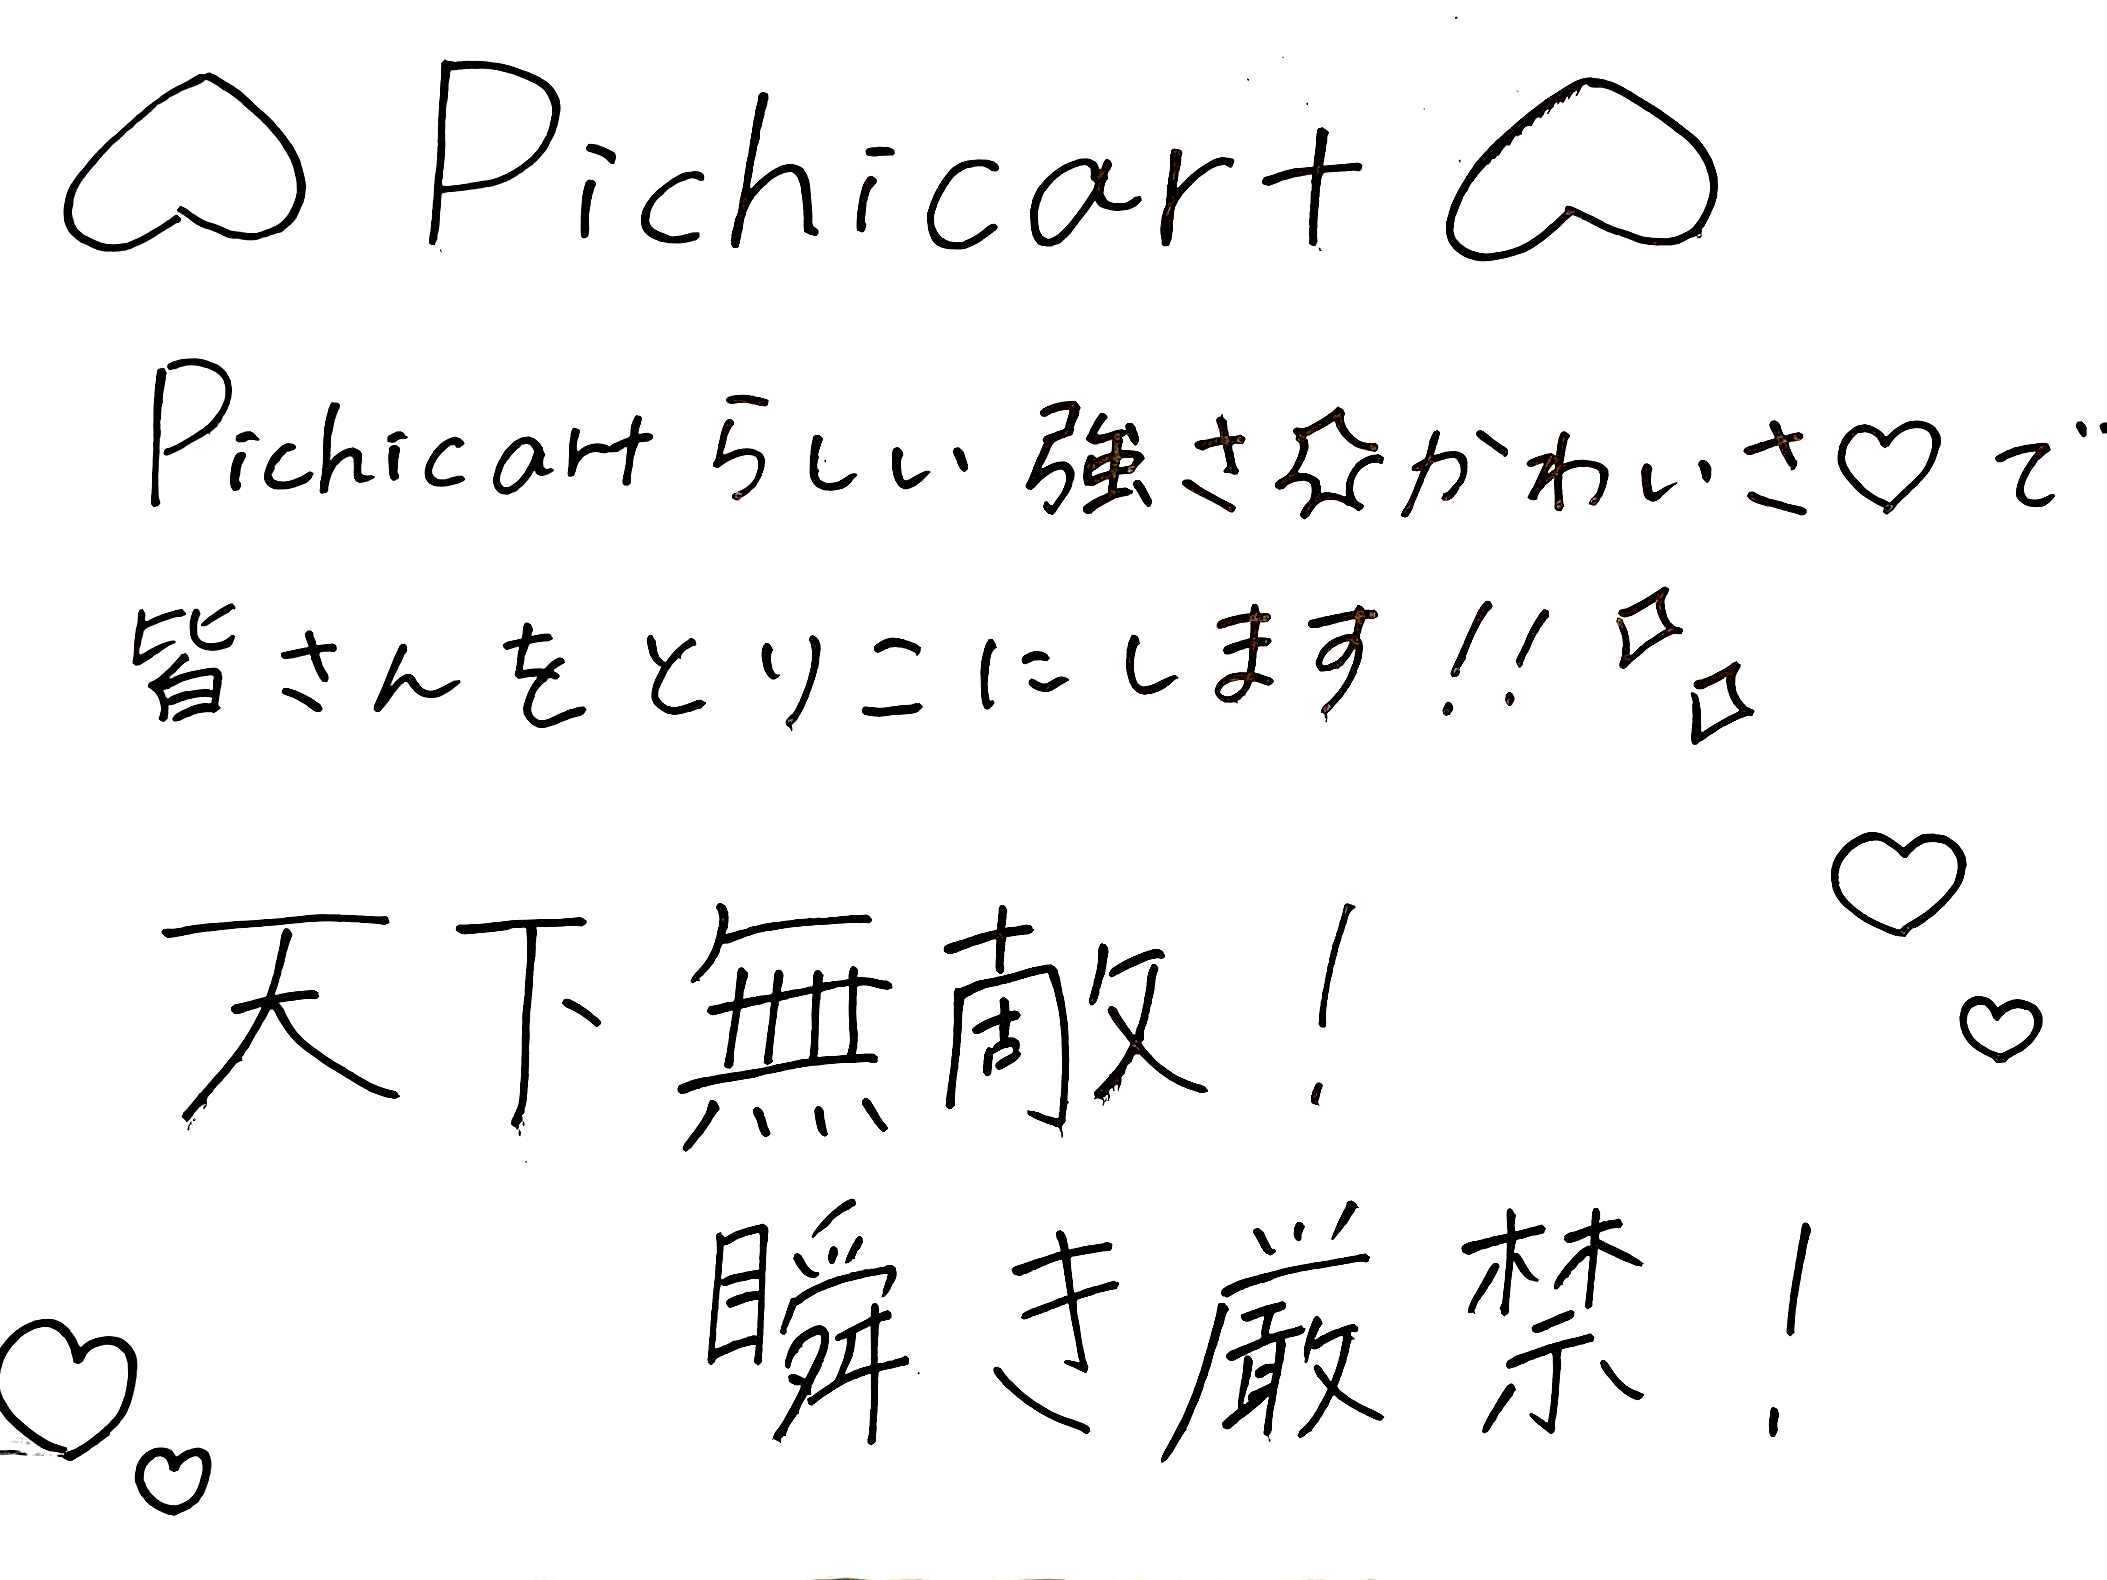 Pichicart
Pichicartらしい強さ☆かわいさ♡で
皆さんをとりこにします!!
天下無敵!
瞬き厳禁!